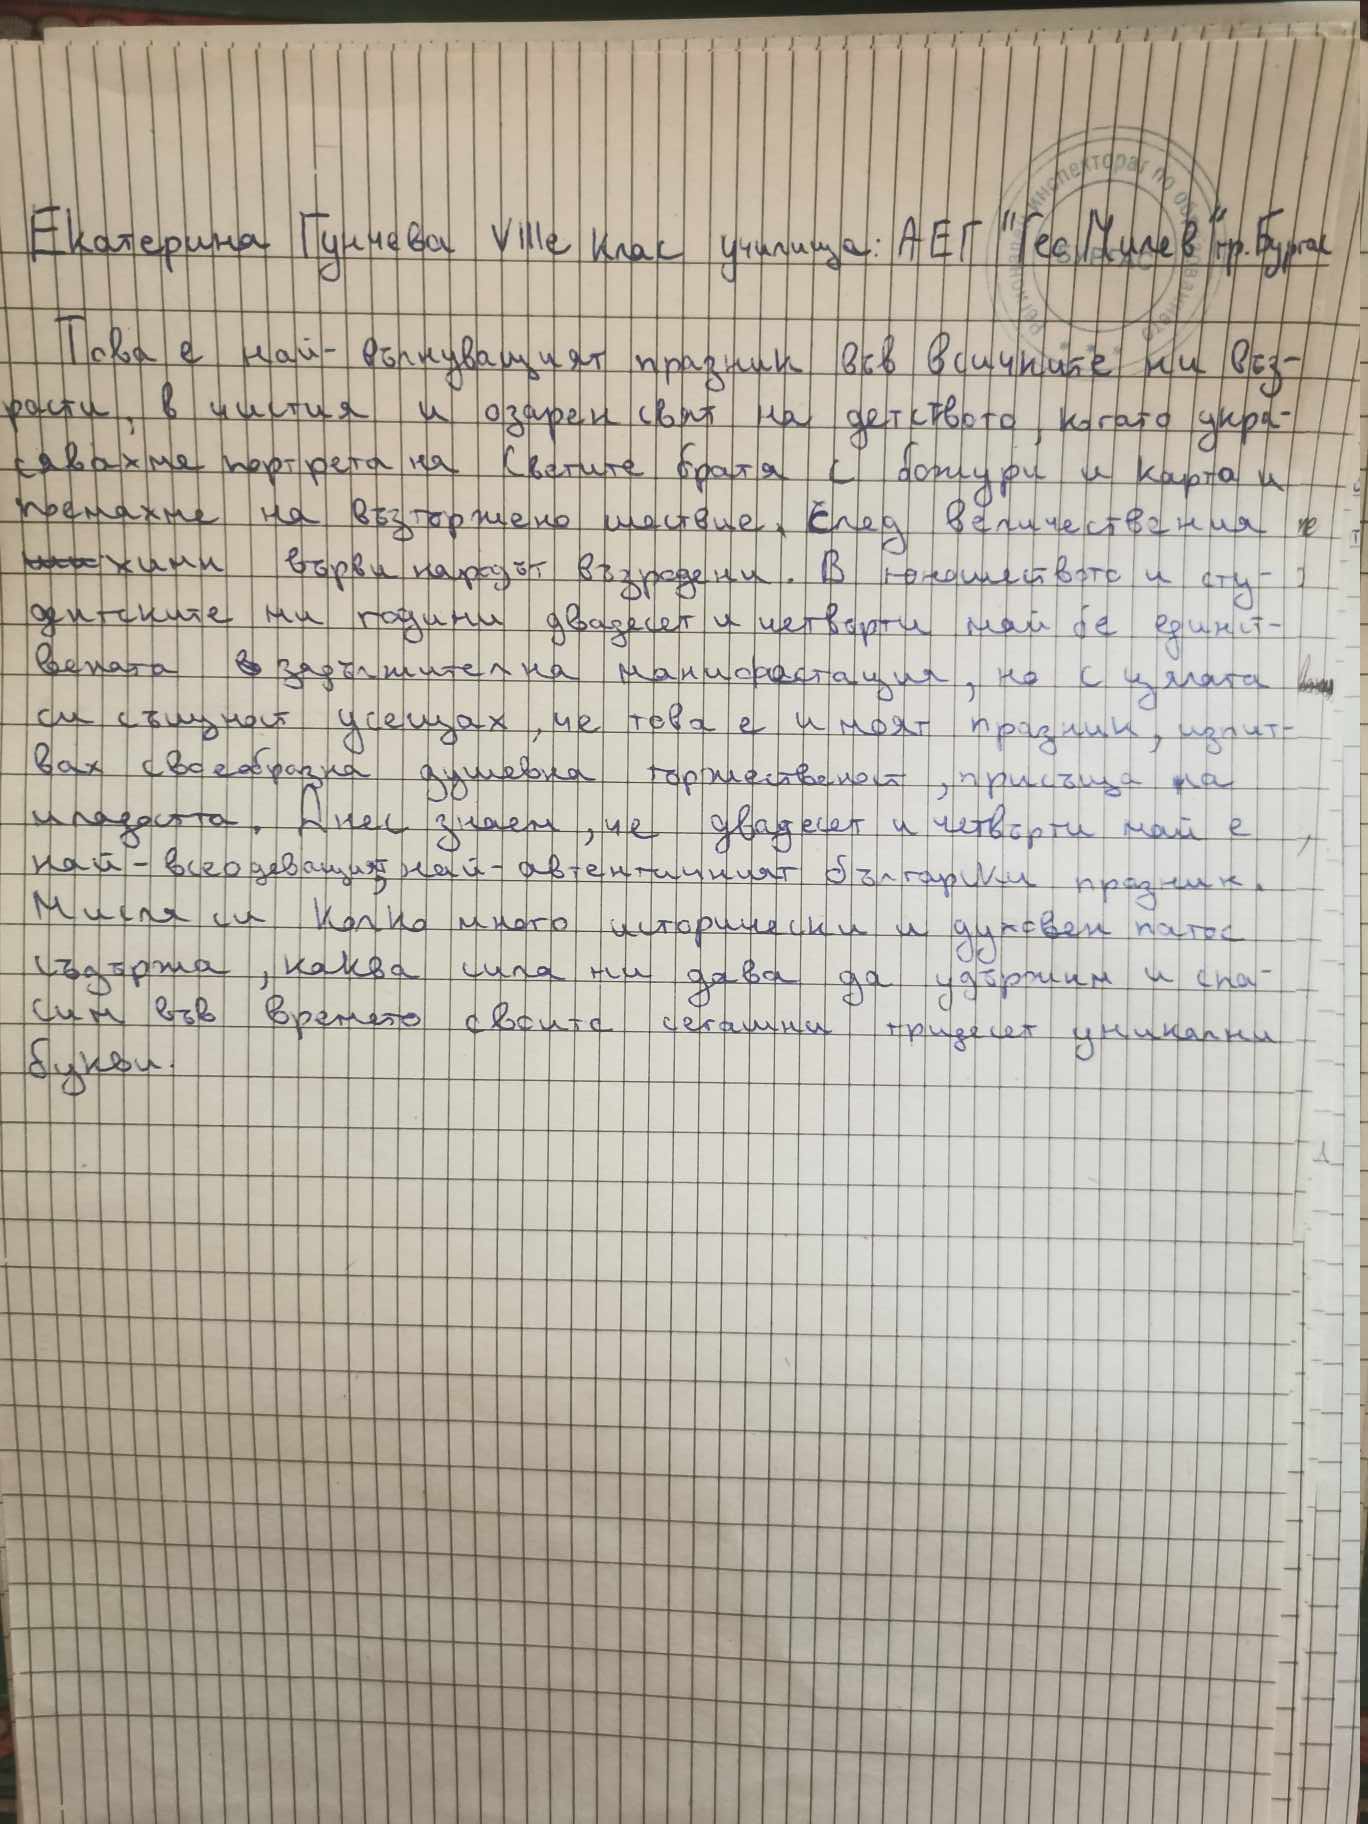 Екатерина Гунчева VIIIе клас училища: АЕГ "Гео Милев" гр. Бургас
Регионален инспекторат по образованието
Това е най-вълнуващият празник във всичките ни въз-
расти, в чистия и озарен свят на детството, когато укра-
сявахме портрета на Светите братя с божури и карта и
поемахме на възторжено шествие. След величествения
химн върви народът възродени. В юношеството и сту-
дентските ни години двадесет и четвърти май бе единст-
вената задължителна манифестация, но с цялата
си същност усещах, че това е и моят празник, изпит-
вах своеобразна душевна тържественост, присъща на
младостта. Днес знаем, че двадесет и четвърти май е
най-всеодеващият, най-автентичният български празник.
Мисля си колко много исторически и духовен патос
съдържа, каква сила ни дава да удържим и спа-
сим във времето своите сегашни тридесет уникални
букви.